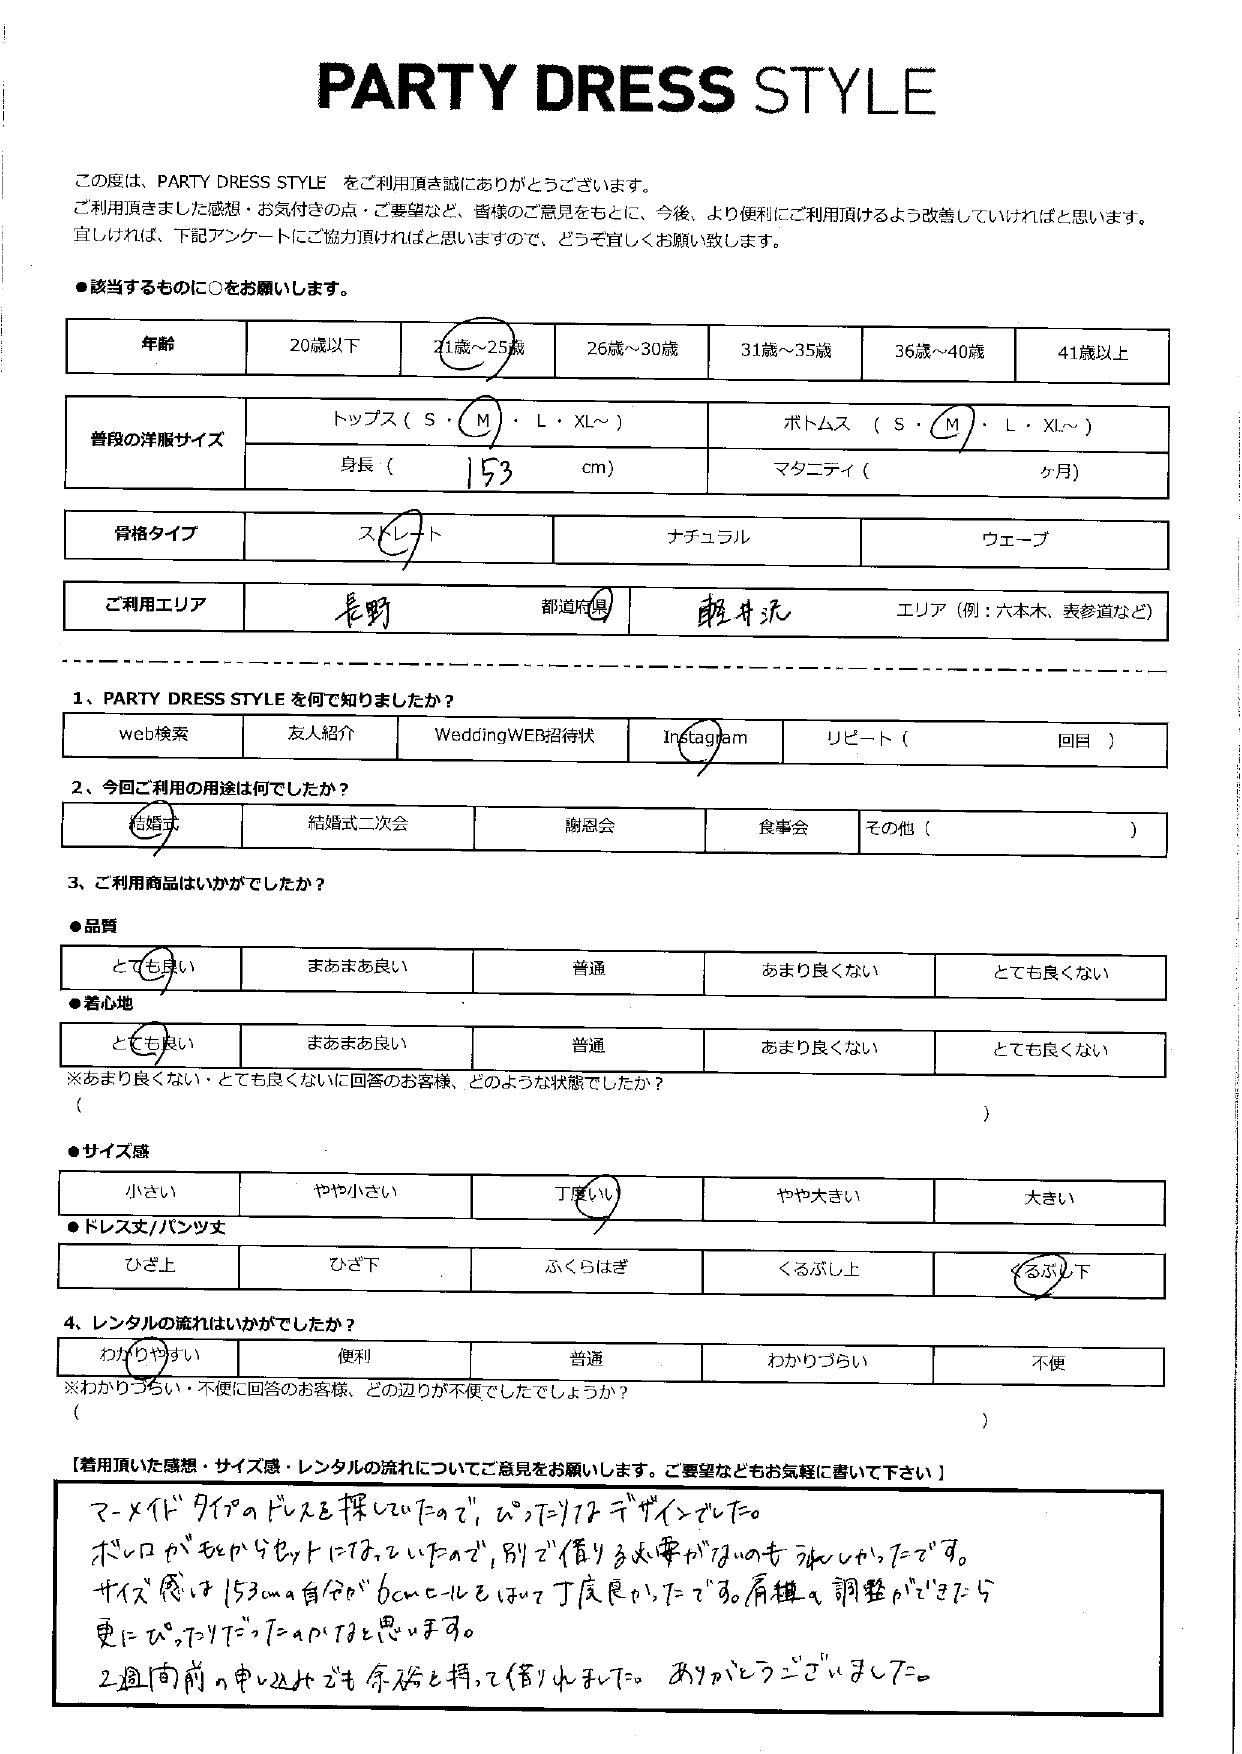 PARTY DRESS STYLE
この度は、PARTY DRESS STYLE をご利用頂き誠にありがとうございます。
ご利用頂きました感想・お気付きの点・ご要望など、皆様のご意見をもとに、今後、より便利にご利用頂けるよう改善していければと思います。
宜しければ、下記アンケートにご協力頂ければと思いますので、どうぞ宜しくお願い致します。
●該当するものに○をお願いします。
年齢 20歳以下 21歳～25歳 26歳～30歳 31歳～35歳 36歳～40歳 41歳以上
普段の洋服サイズ トップス ( S ・ M ・ L ・ XL～ ) ボトムス ( S ・ M ・ L ・ XL～ )
身長 ( 153 cm) マタニティ ( ヶ月)
骨格タイプ ストレート ナチュラル ウェーブ
ご利用エリア 長野 都道府県 軽井沢 エリア（例：六本木、表参道など）
1、PARTY DRESS STYLE を何で知りましたか？
web検索 友人紹介 WeddingWEB招待状 Instagram リピート ( 回目 )
2、今回ご利用の用途は何でしたか？
結婚式 結婚式二次会 謝恩会 食事会 その他 ( )
3、ご利用商品はいかがでしたか？
●品質
とても良い まあまあ良い 普通 あまり良くない とても良くない
●着心地
とても良い まあまあ良い 普通 あまり良くない とても良くない
※あまり良くない・とても良くないに回答のお客様、どのような状態でしたか？
( )
●サイズ感
小さい やや小さい 丁度いい やや大きい 大きい
●ドレス丈/パンツ丈
ひざ上 ひざ下 ふくらはぎ くるぶし上 くるぶし下
4、レンタルの流れはいかがでしたか？
わかりやすい 便利 普通 わかりづらい 不便
※わかりづらい・不便に回答のお客様、どの辺りが不便でしたでしょうか？
( )
【着用頂いた感想・サイズ感・レンタルの流れについてご意見をお願いします。ご要望などもお気軽に書いて下さい】
マーメイドタイプのドレスを探していたので、ぴったりなデザインでした。
ボレロがもとからセットになっていたので、別で借りる必要がないのもうれしかったです。
サイズ感は153cmの自分が6cmヒールをはいて丁度良かったです。肩紐の調整ができたら
更にぴったりだったのかなと思います。
2週間前の申し込みでも余裕を持って借りれました。ありがとうございました。